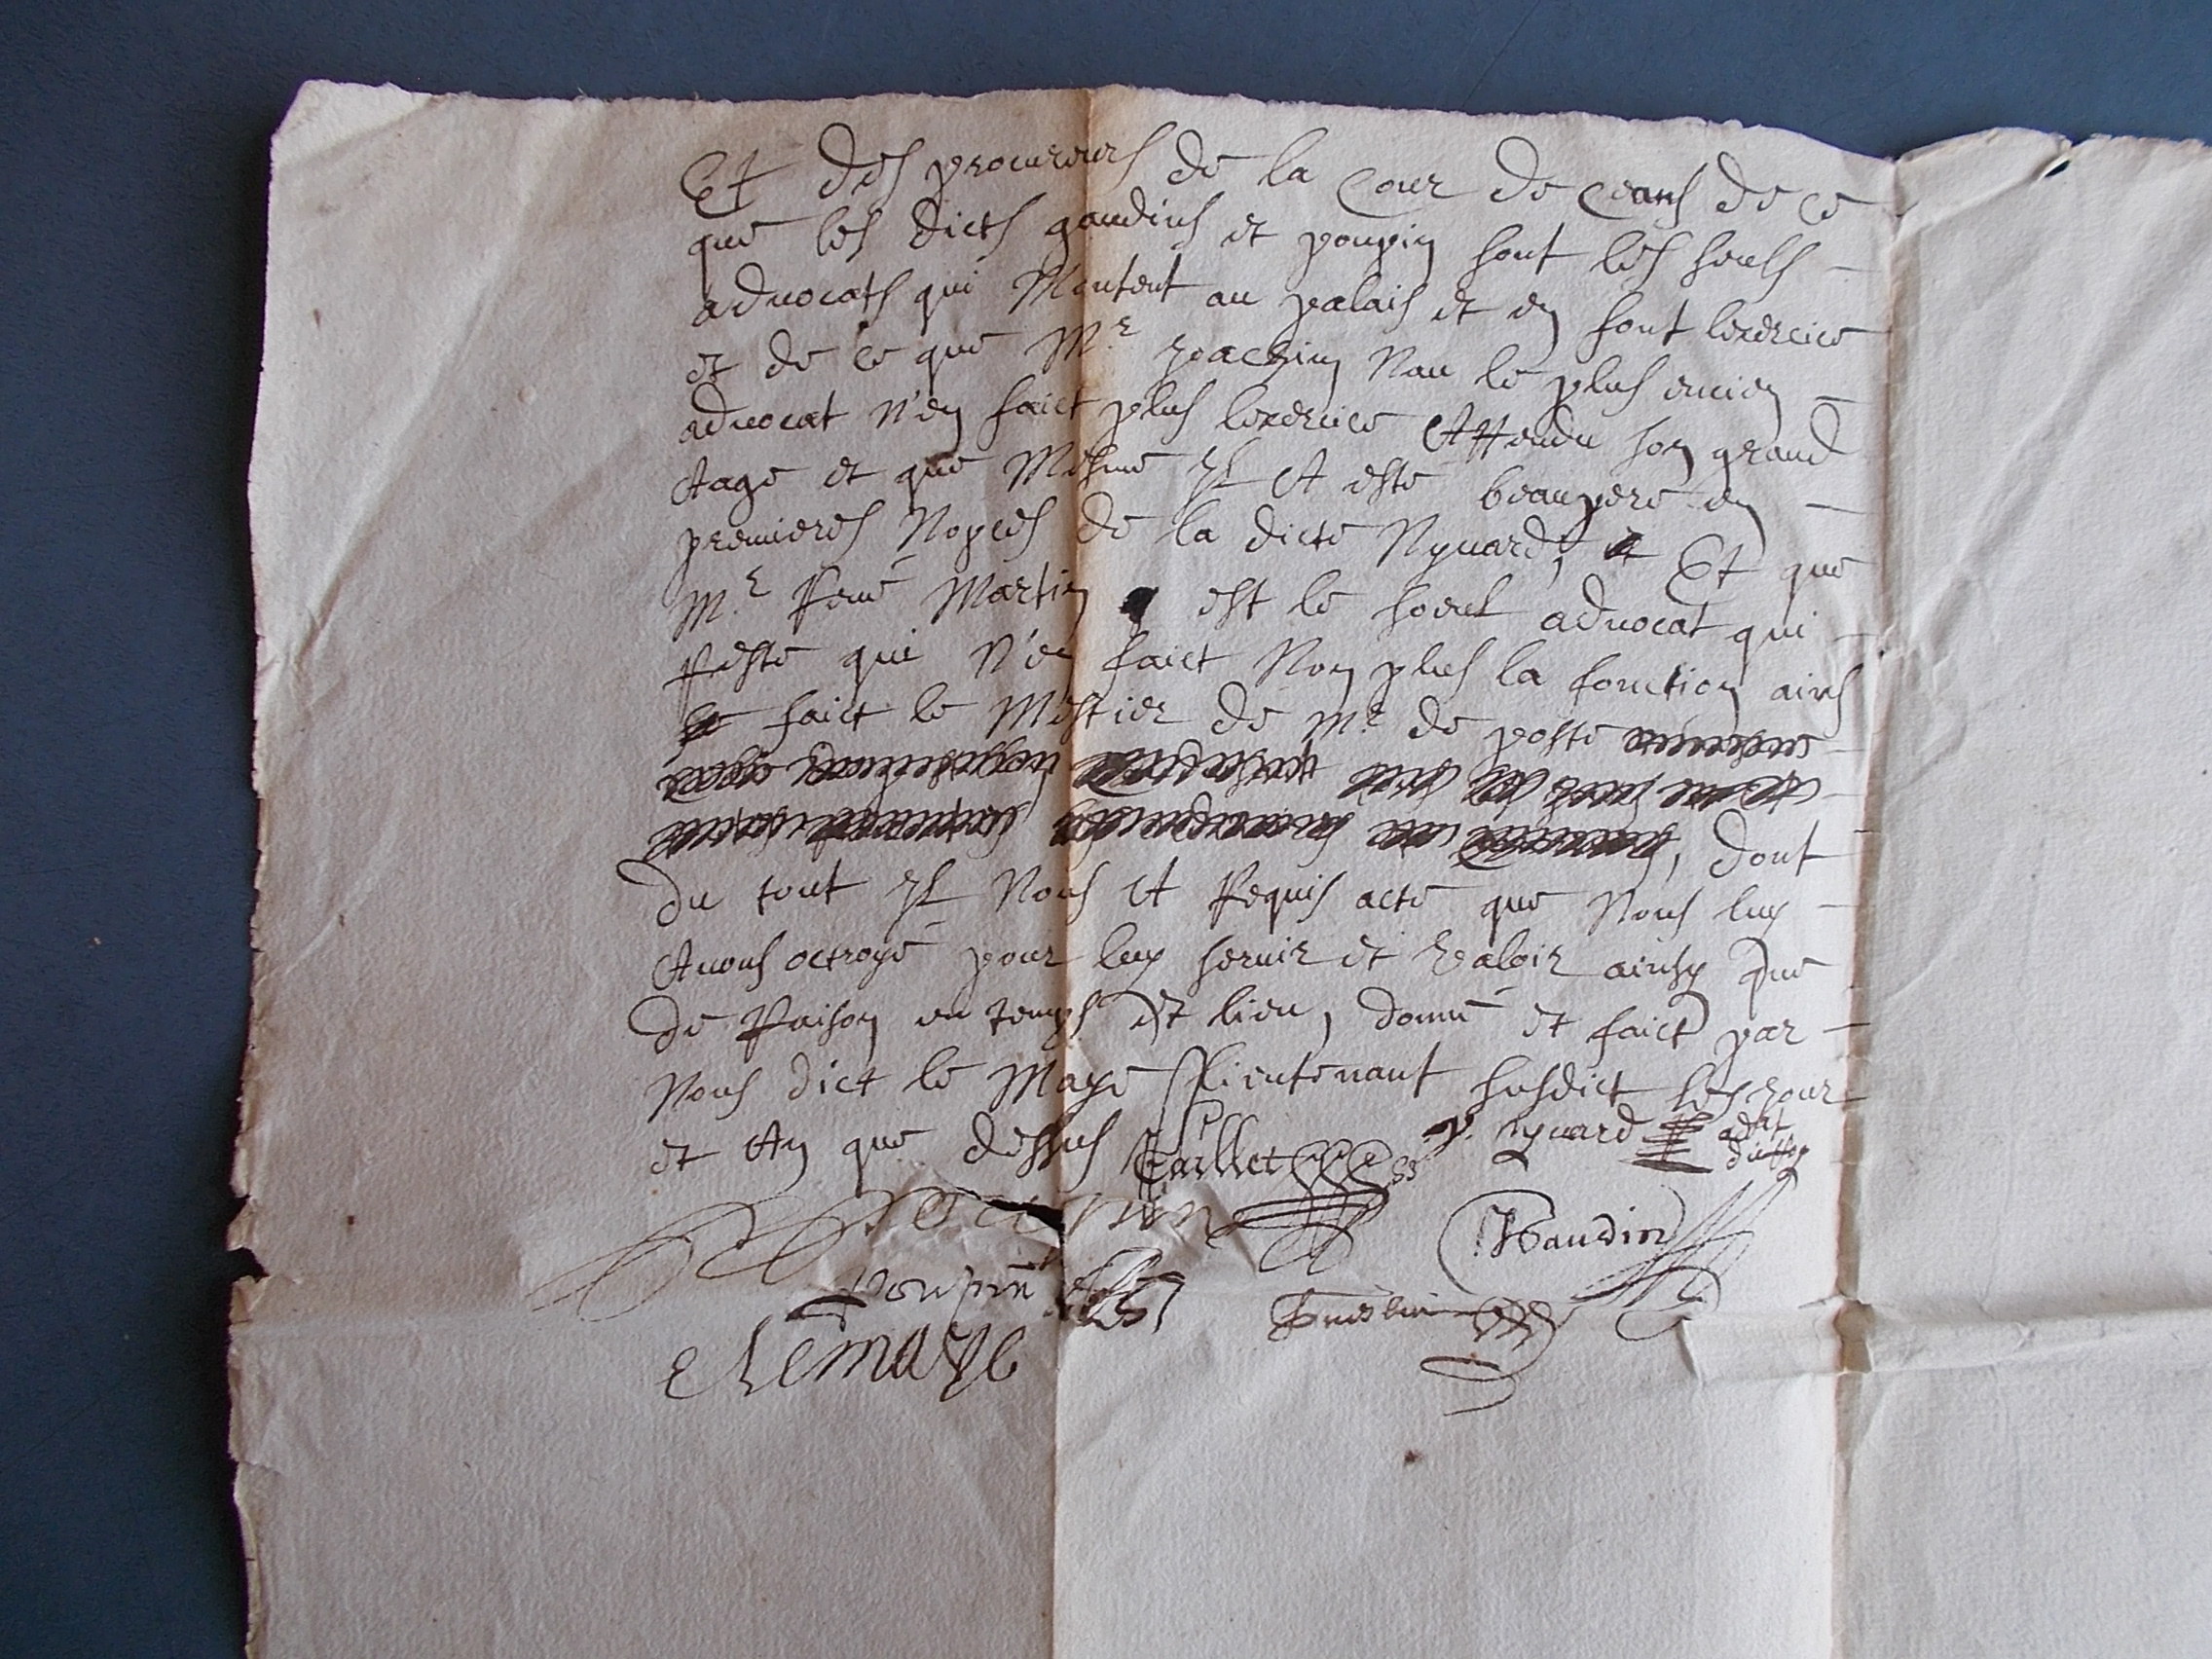 Et des procureurs de la Cour de ceans de ce
que les dicts gaudins et poupin sont les seuls
advocats qui Montent au palais et en font lexercice
et de ce que Mr Joachim Nau le plus encien
advocat n'en faict plus lexercice Attendu son grand
Aage et que Mesme yl A esté beaupere en
premieres Nopces de la dicte Nyvard, Et que
Mr René Martin est le seul advocat qui
Reste qui n'en faict Non plus la fonction ains
faict le Mestier de Mr de poste
, dont
du tout yl Nous A Requis acte que Nous luy
Avons octroyé pour luy servir et valoir ainsy que
de Raison en temps et lieu, donné et faict par
Nous dict le Maye Lieutenant susdict les jour
et An que dessus
Paillet p. Nyvard
Gaudin
poupin
Lemaye